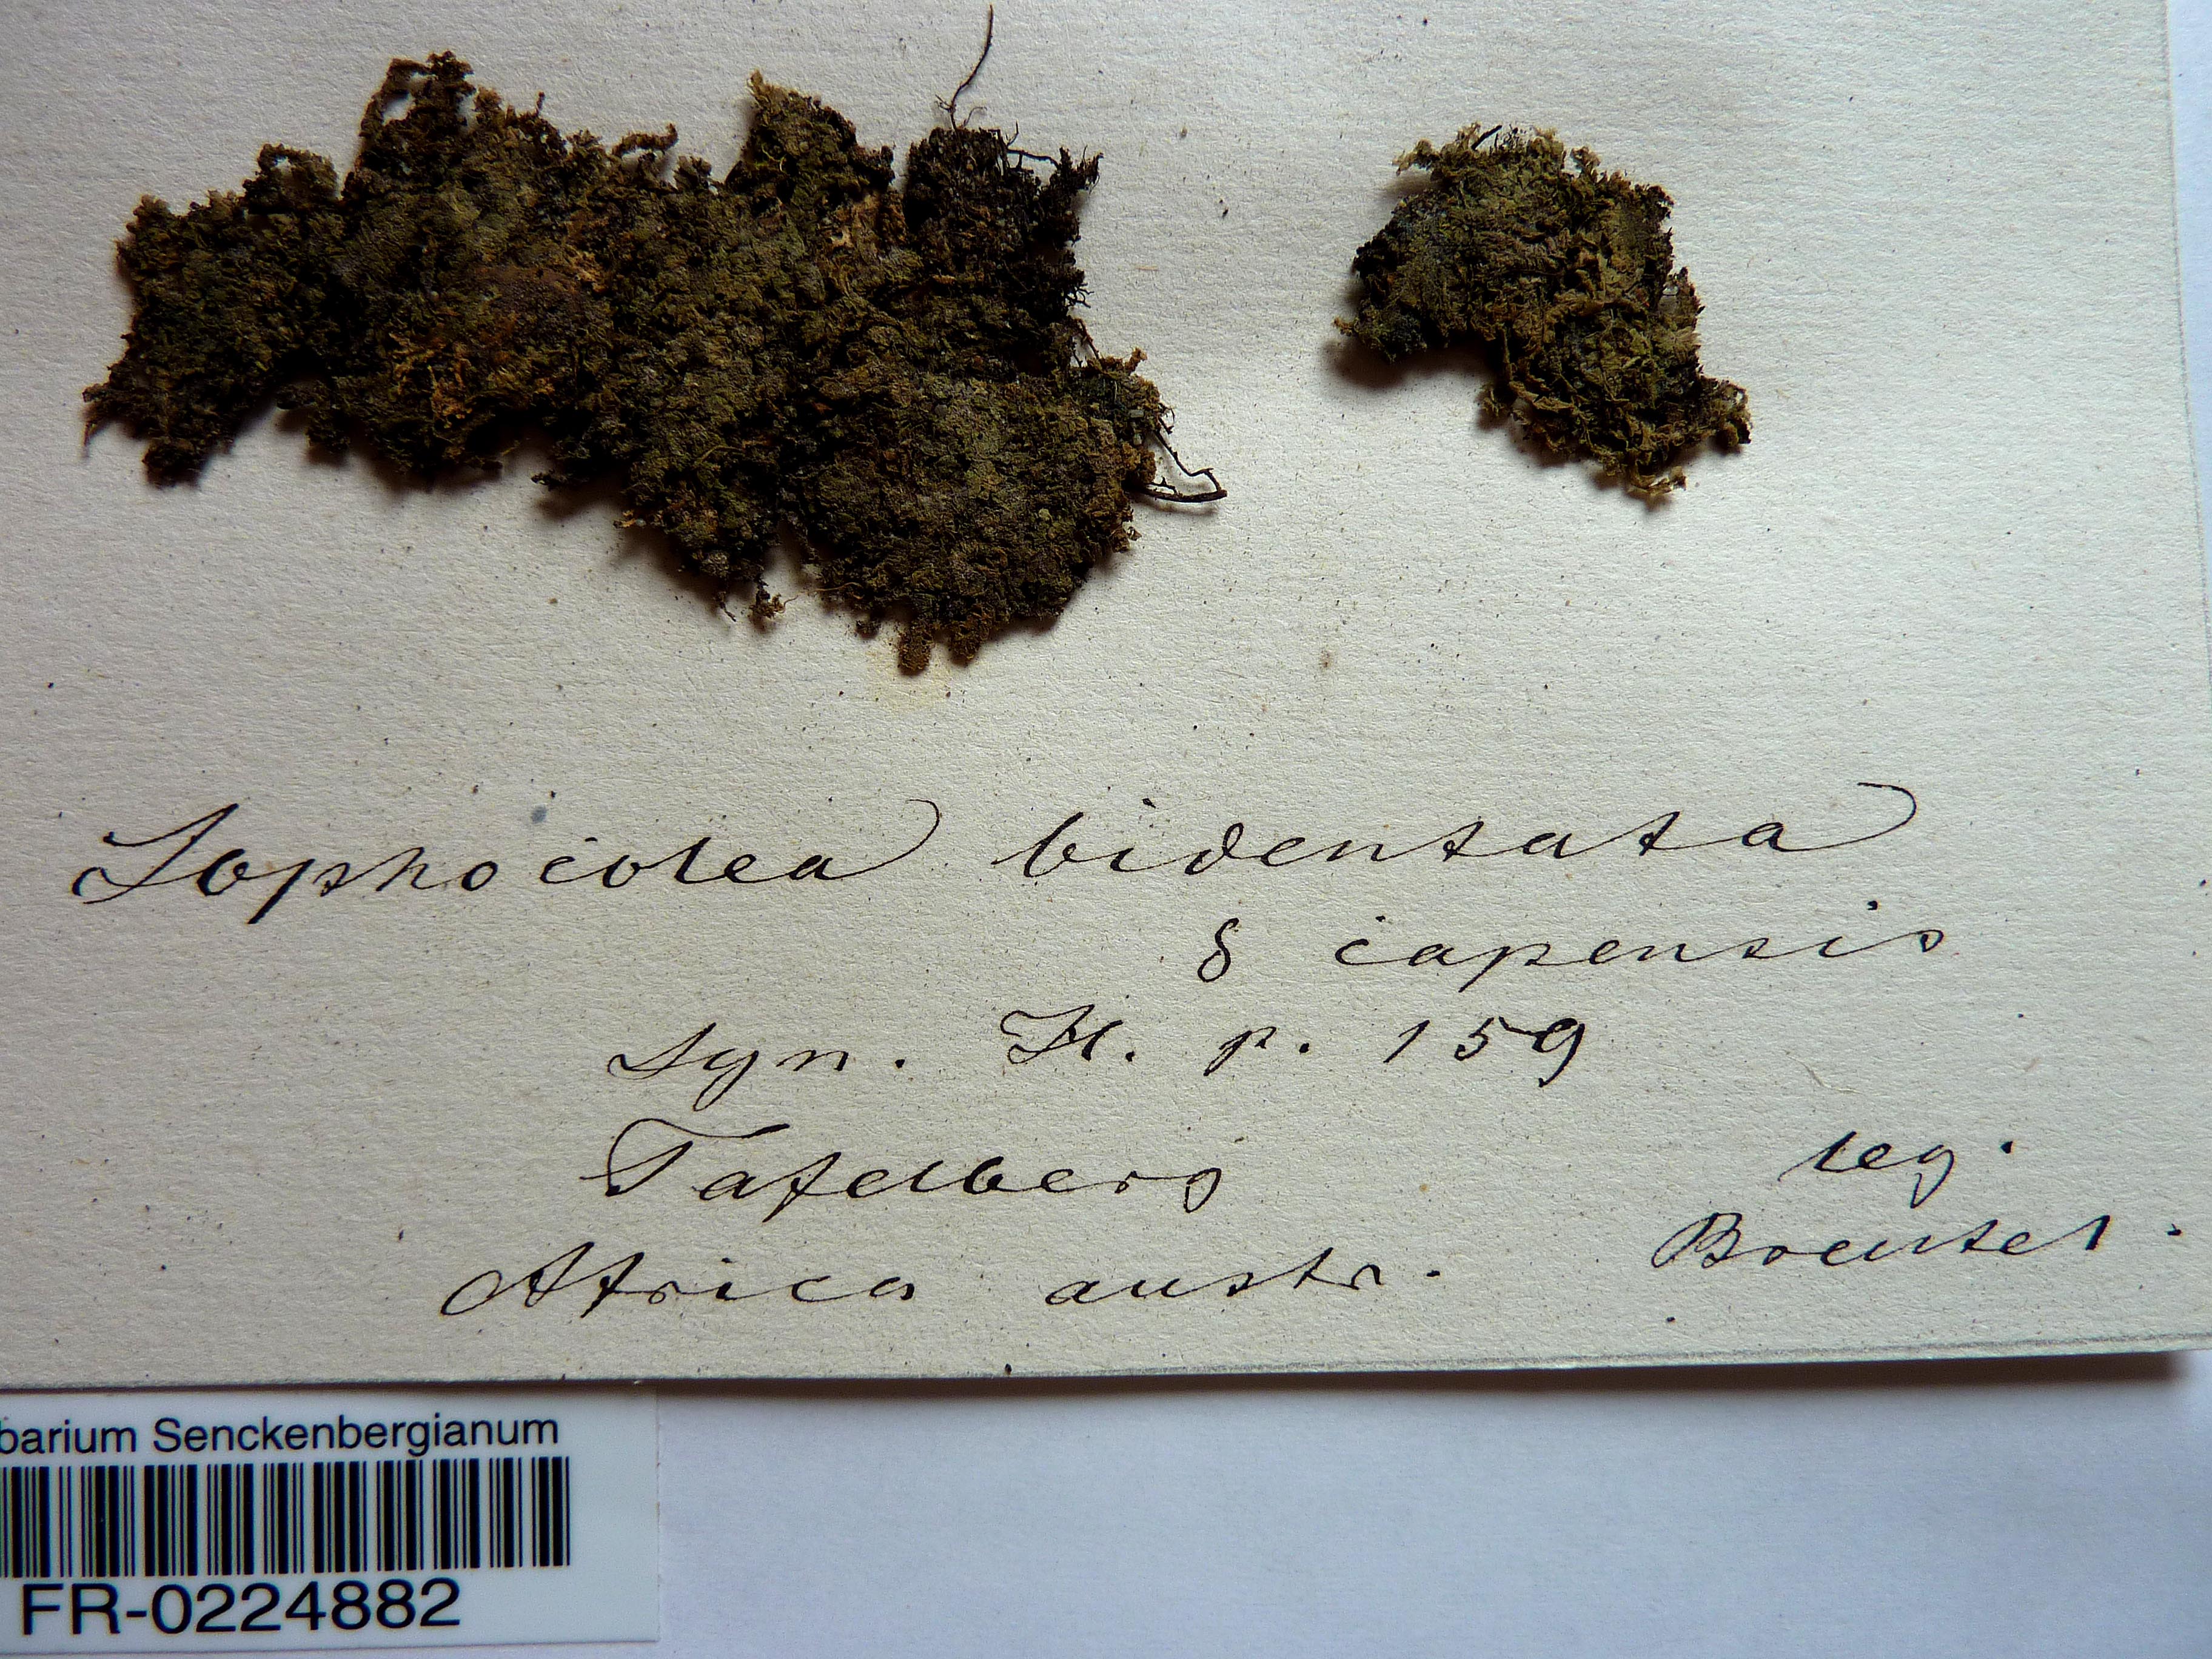 Lophocolea bidentata
δ capensis
Syn. H. p. 159
Tafelberg
leg.
Africa austr. Breutel.
barium Senckenbergianum
FR-0224882